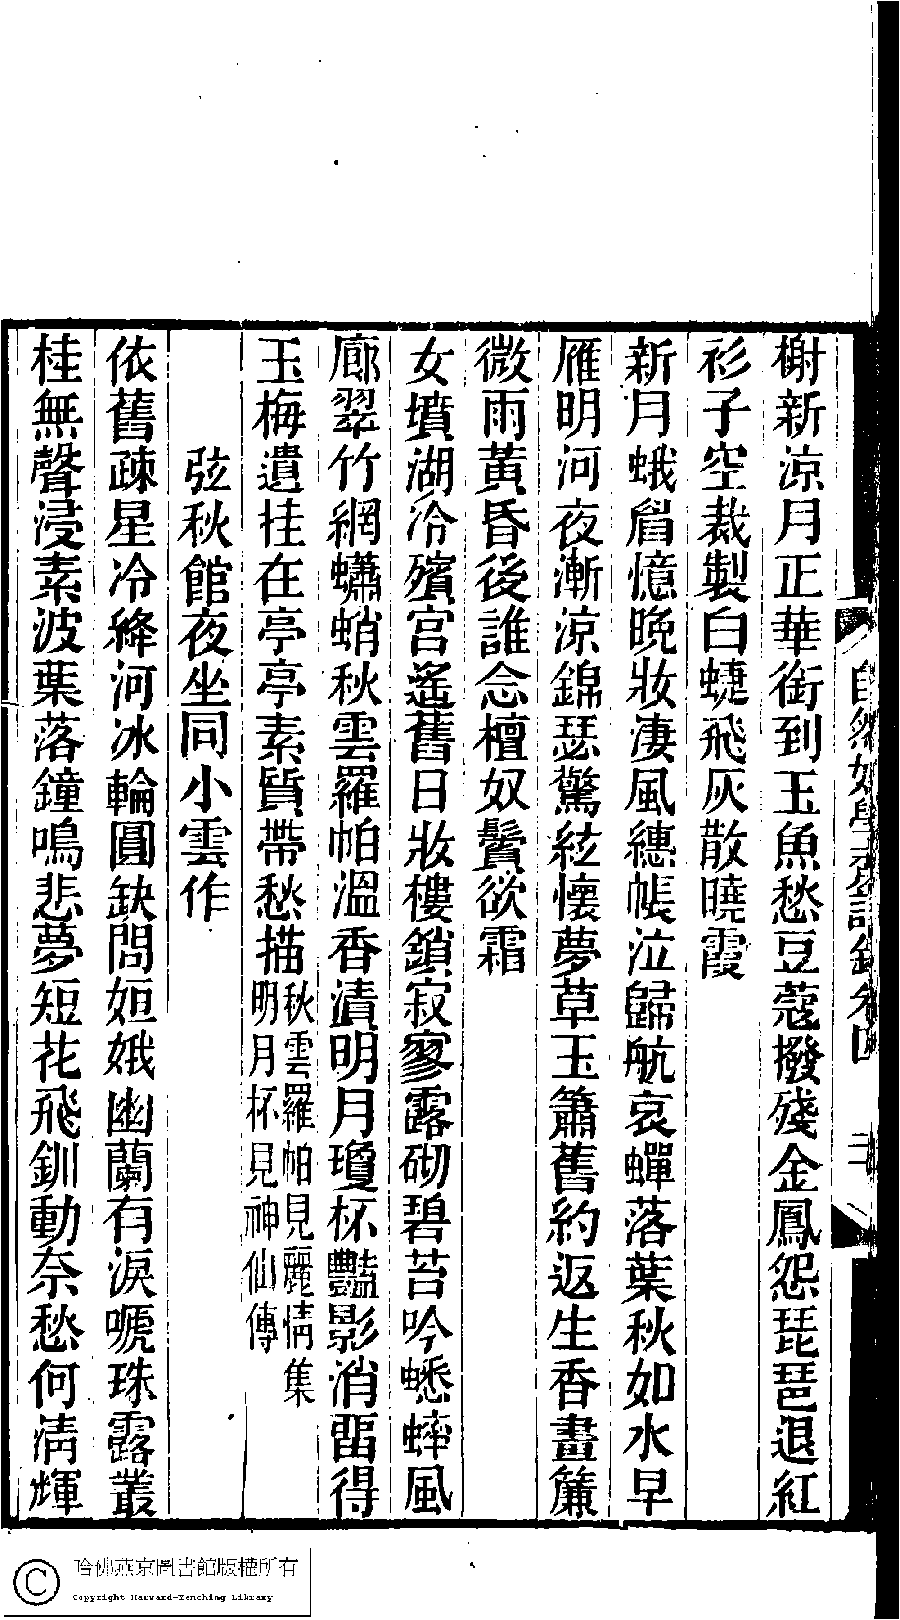 榭新涼月正華銜到玉魚愁豆蔻撥殘金鳳怨琵琶退紅
衫子空裁製白蜨飛灰散曉霞
新月蛾眉憶晚妝淒風繐帳泣歸航哀蟬落葉秋如水早
雁明河夜漸涼錦瑟驚絃懷夢草玉簫舊約返生香畫簾
微雨黃昏後誰念檀奴鬢欲霜
女墳湖冷殯宮遙舊日妝樓鎖寂寥露砌碧苔吟蟋蟀風
廊翠竹網蠨蛸秋雲羅帕溫香漬明月瓊杯豔影消留得
玉梅遺挂在亭亭素質帶愁描秋雲羅帕見麗情集
明月杯見神仙傳
弦秋館夜坐同小雲作
依舊疎星冷絳河冰輪圓缺問姮娥幽蘭有淚嗁珠露叢
桂無聲浸素波葉落鐘鳴悲夢短花飛釧動奈愁何清輝
自然好學齋詩鈔卷四
哈佛燕京圖書館版權所有
Copyright Harvard-Yenching Library